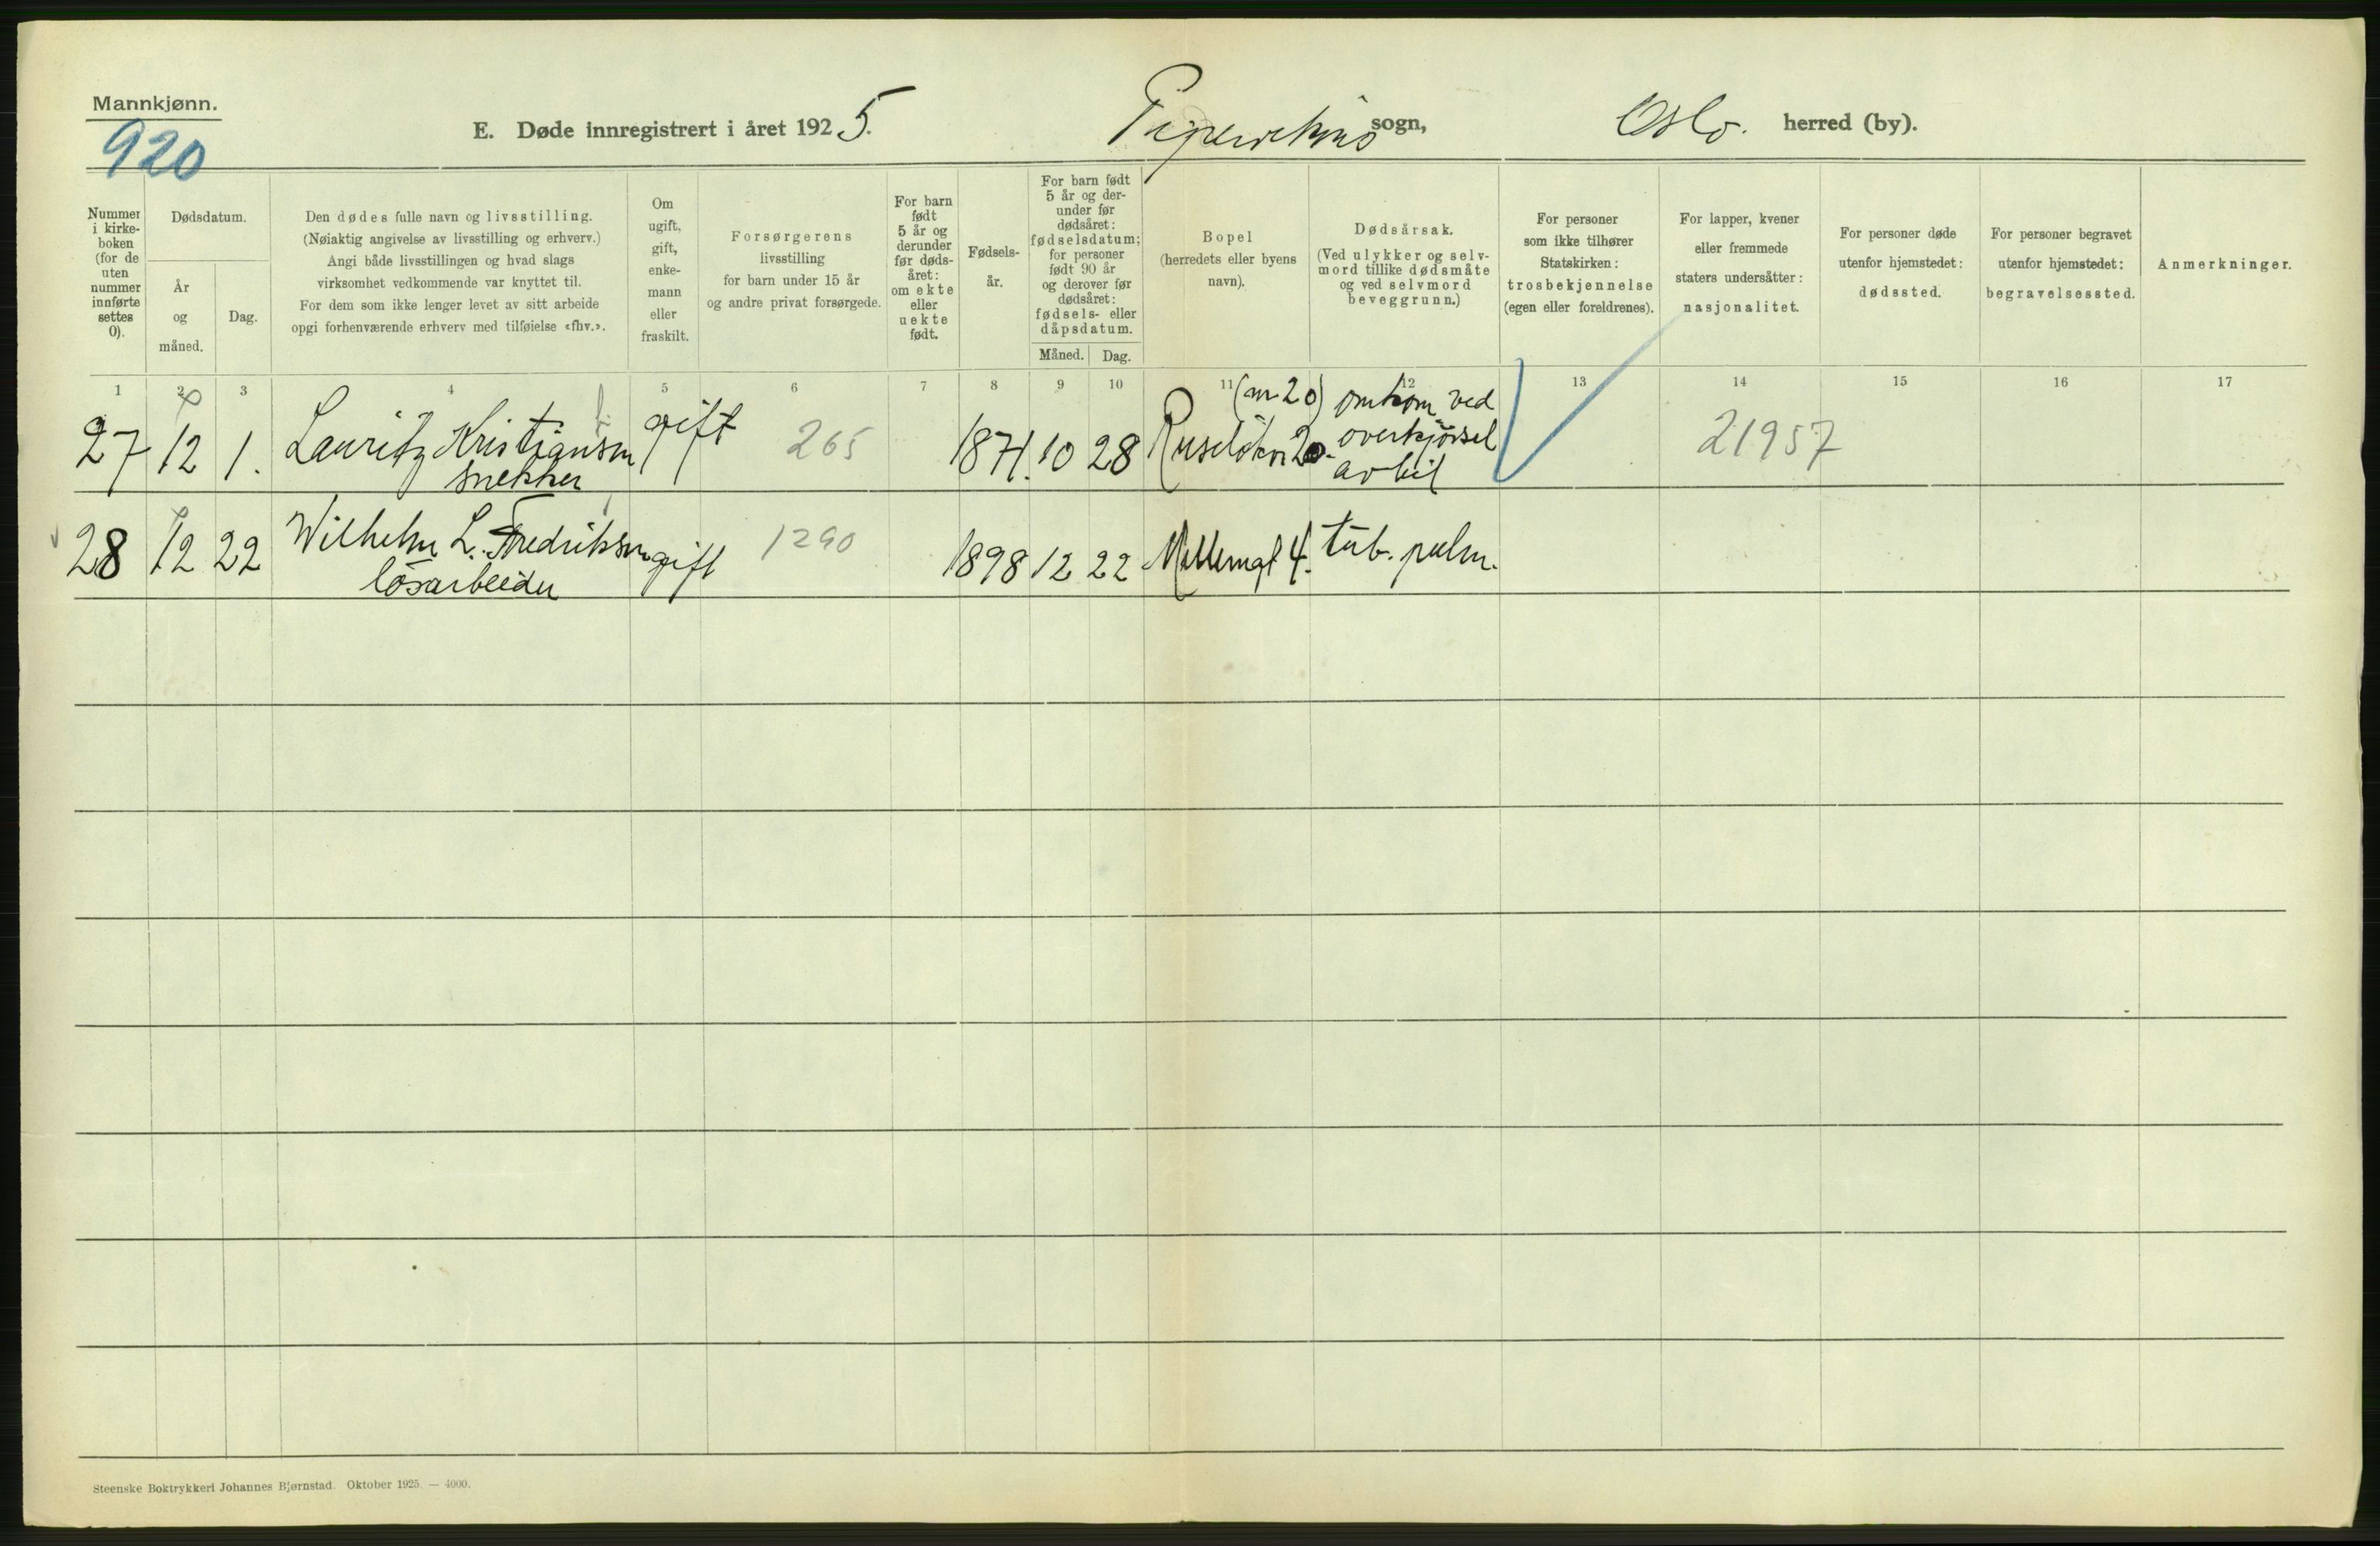 Mannkjønn.
920
E. Døde innregistrert i året 1925. sogn, Oslo. herred (by).
Nummer i kirkeboken (for de uten nummer innførte settes 0).
Dødsdatum.
År og måned.
Dag.
Den dødes fulle navn og livsstilling.
(Nøiaktig angivelse av livsstilling og erhverv.)
Angi både livsstillingen og hvad slags
virksomhet vedkommende var knyttet til.
For dem som ikke lenger levet av sitt arbeide
opgi forhenværende erhverv med tilføielse «fhv.».
Om ugift, gift, enkemann eller fraskilt.
Forsørgerens
livsstilling
for barn under 15 år
og andre privat forsørgede.
For barn født 5 år og derunder før dødsåret: om ekte eller uekte født.
Fødselsår.
For barn født 5 år og derunder før dødsåret: fødselsdatum; for personer født 90 år og derover før dødsåret: fødsels- eller dåpsdatum.
Måned. Dag.
Bopel
(herredets eller byens
navn).
Dødsårsak.
(Ved ulykker og selvmord tillike dødsmåte og ved selvmord beveggrunn.)
For personer
som ikke tilhører
Statskirken:
trosbekjennelse
(egen eller foreldrenes).
For lapper, kvener
eller fremmede
staters undersåtter:
nasjonalitet.
For personer døde
utenfor hjemstedet:
dødssted.
For personer begravet
utenfor hjemstedet:
begravelsessted.
Anmerkninger.
1 2 3 4 5 6 7 8 9 10 11 12 13 14 15 16 17
27 12 1. Lauritz Kristiansen gift 265 1871. 10 28 (nr 20) omkom ved
snekker overkjørsel
av bil 21957
28 12 22 Wilhelm L. Fredriksen gift 1290 1898 12 22 Mellemgt 4. tub. pulm.
løsarbeider
Steenske Boktrykkeri Johannes Bjørnstad. Oktober 1925. — 4000.